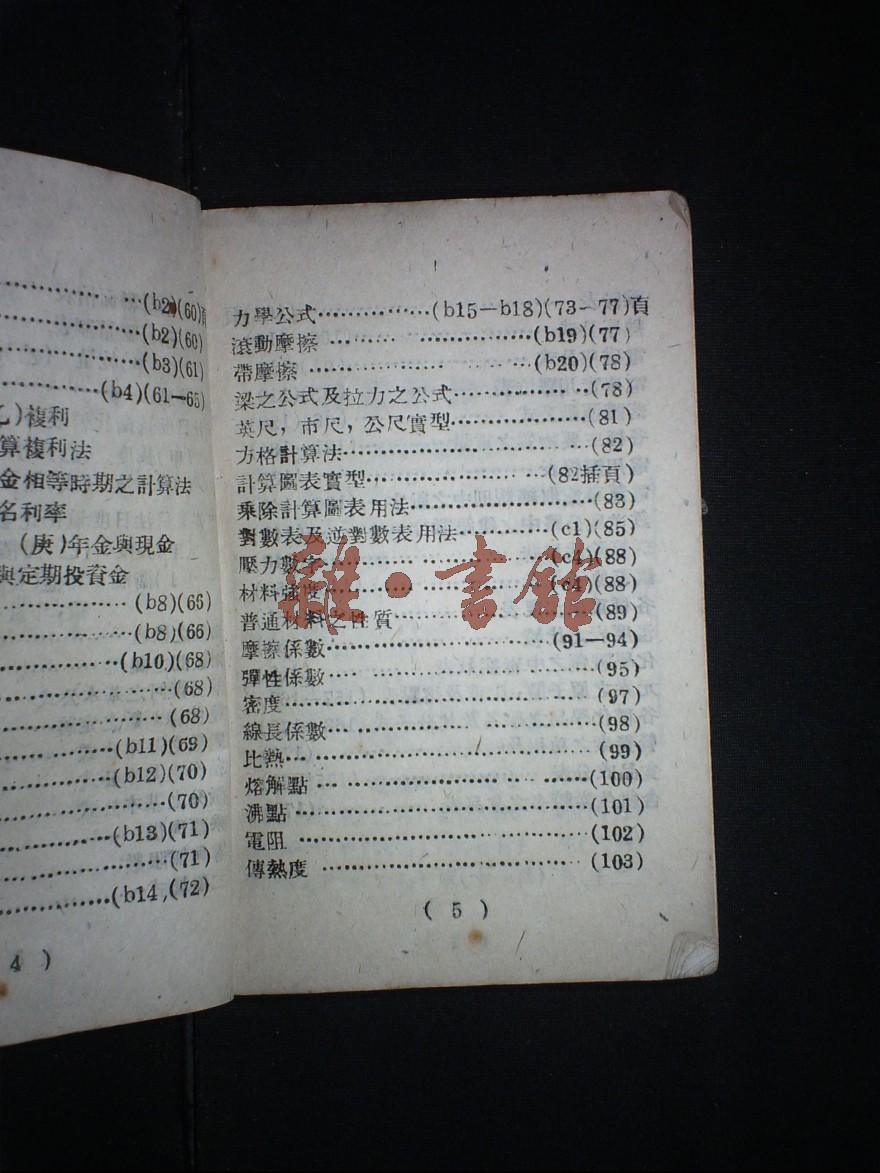 (b2)(60)頁
(b2)(60)
(b3)(61)
(b4)(61—65)
)複利
算複利法
金相等時期之計算法
名利率
(庚)年金與現金
與定期投資金
(b8)(66)
(b8)(66)
(b10)(68)
(68)
(68)
(b11)(69)
(b12)(70)
(70)
(b13)(71)
(71)
(b14,(72)
4 )
力學公式……………(b15—b18)(73—77)頁
滾動摩擦……………(b19)(77)
帶摩擦……………(b20)(78)
梁之公式及拉力之公式……………(78)
英尺，市尺，公尺實型……………(81)
方格計算法……………(82)
計算圖表實型……………(82插頁)
乘除計算圖表用法……………(83)
對數表及逆對數表用法……………(c1)(85)
壓力數字……………(c4)(88)
材料強度……………(c4)(88)
普通材料之性質……………(89)
摩擦係數……………(91—94)
彈性係數……………(95)
密度……………(97)
線長係數……………(98)
比熱……………(99)
熔解點……………(100)
沸點……………(101)
電阻……………(102)
傳熱度……………(103)
( 5 )
雜·書館